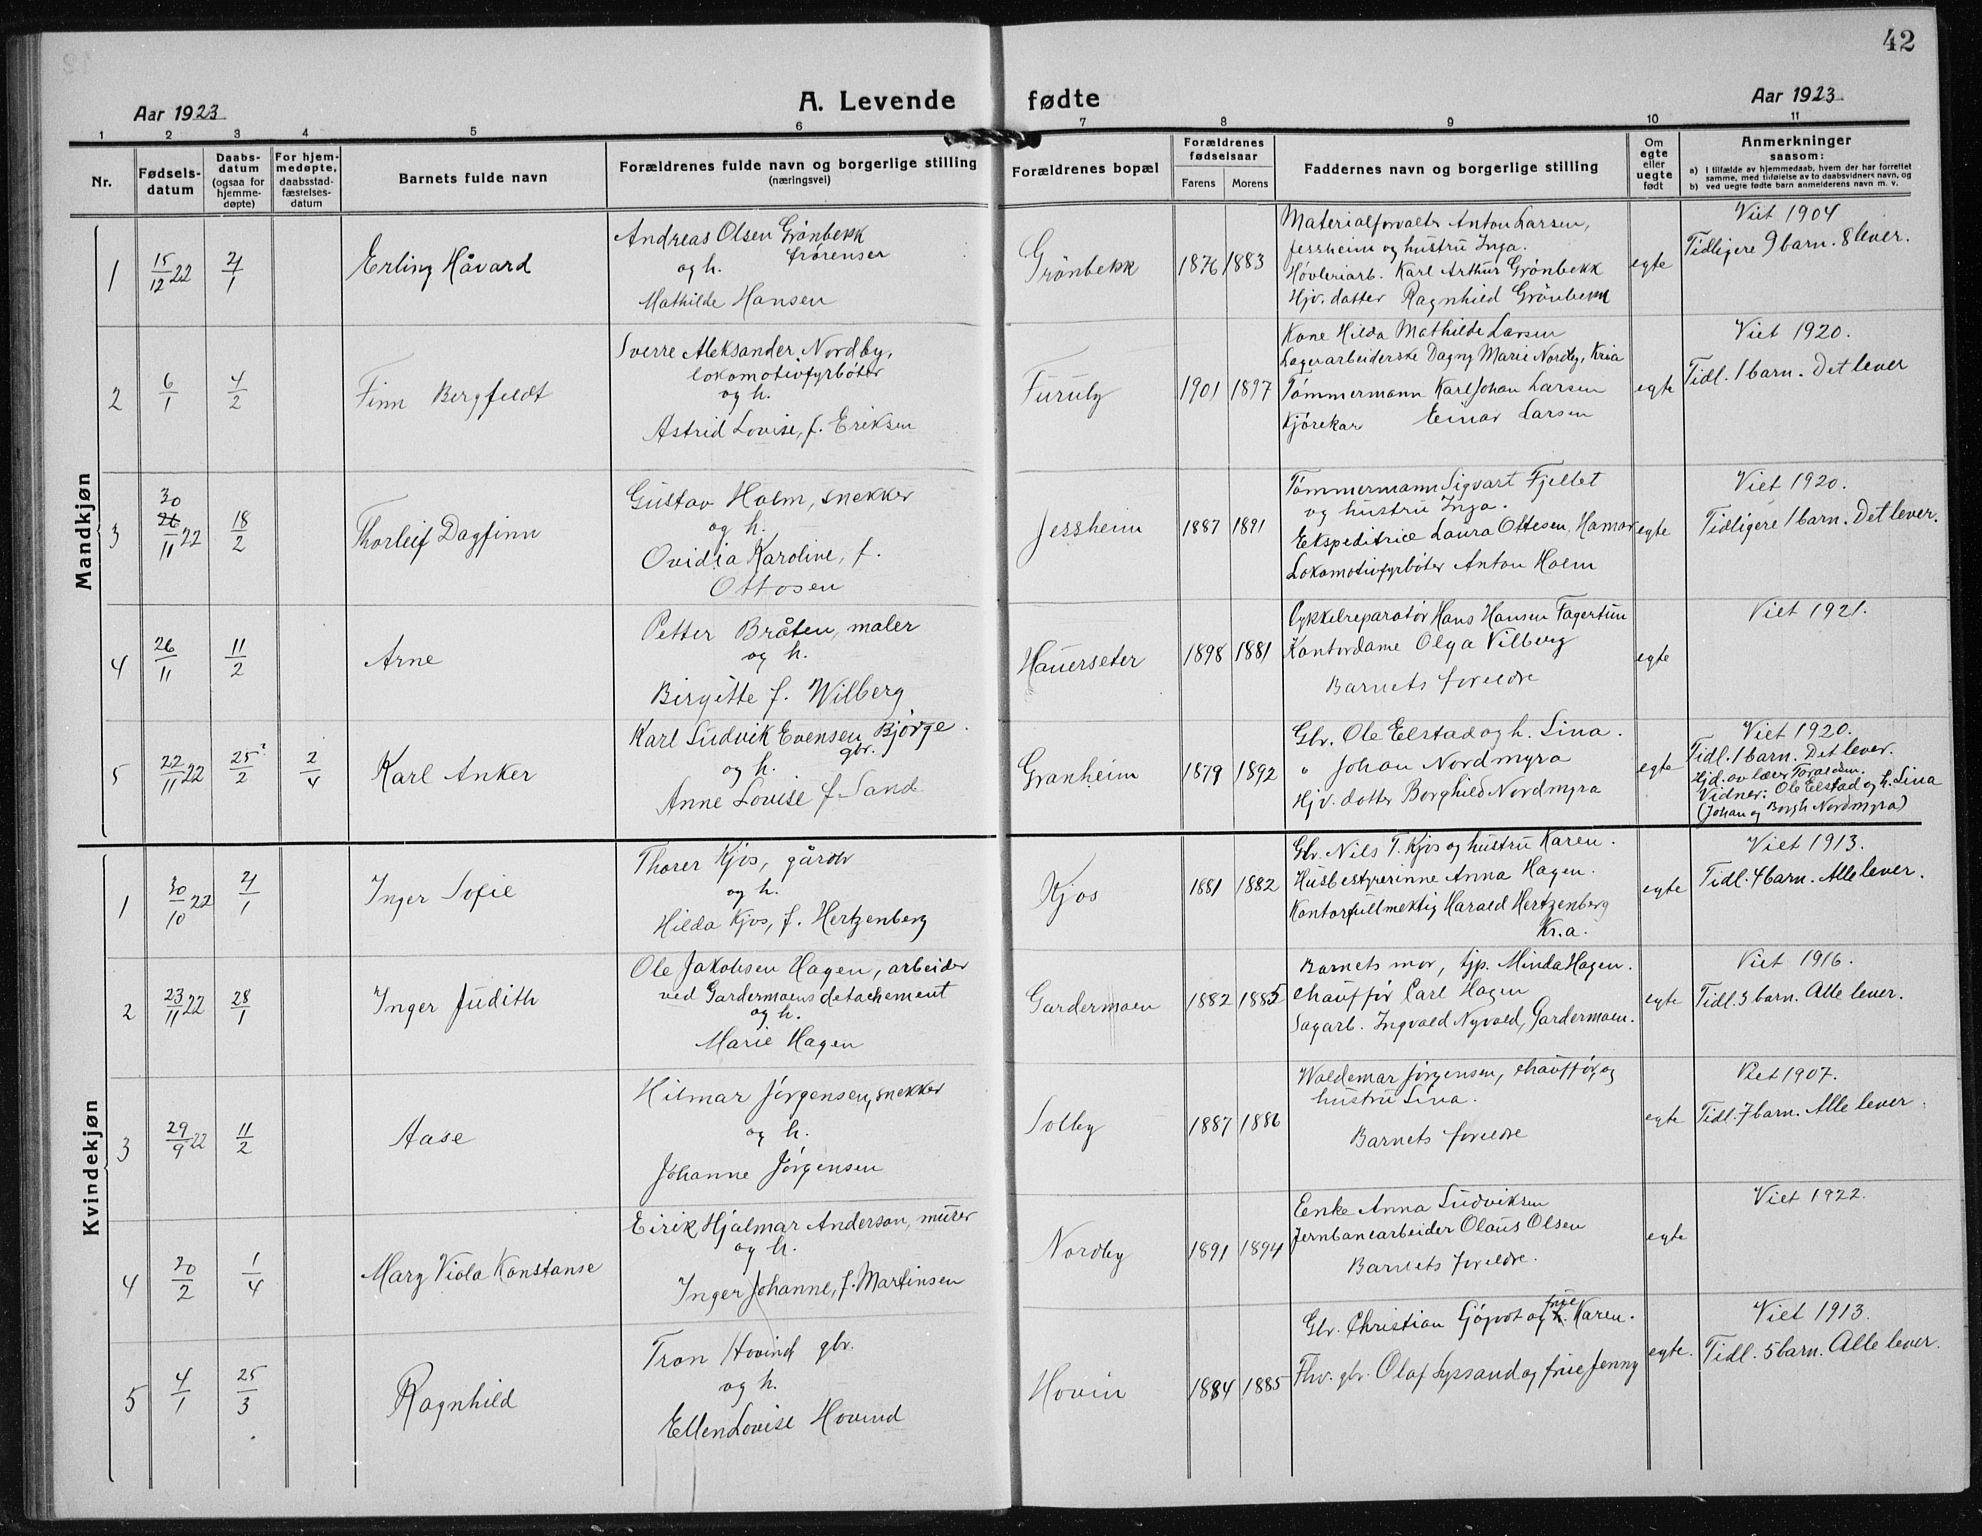 42
Aar 1923
A. Levende fødte
Aar 1923
1 2 3 4 5 6 7 8 9 10 11
Nr.
Fødsels-
datum
Daabs-
datum
(ogsaa for
hjemme-
døpte)
For hjem-
medøpte,
daabsstad-
fæstelses-
datum
Barnets fulde navn
Forældrenes fulde navn og borgerlige stilling
(næringsvei)
Forældrenes bopæl
Forældrenes
fødselsaar
Farens Morens
Faddernes navn og borgerlige stilling
Om
egte
eller
uegte
født
Anmerkninger
saasom:
a) i tilfælde av hjemmedaab, hvem der har forrettet
samme, med tilføielse av to daabsvidners navn, og
b) ved uegte fødte barn anmelderens navn m. v.
Mandkjøn
1
15/12 22
21/1
Erling Håvard
Andreas Olsen Grönbekk
og h.
Mathilde Hansen
Grönbekk
1876 1883
Materialforvalter Anton Larsen,
Jessheim og hustru Inga.
Høvleriarb. Karl Arthur Grönbekk
Hjv. datter Ragnhild Grönbekk
egte
Viet 1904
Tidligere 9 barn. 8 lever.
2
6/1
4/2
Finn Bergfeldt
Sverre Aleksander Nordby,
lokomotivfyrbøter
og h.
Astrid Lovise, f. Eriksen
Furuly
1901 1897
Kone Hilda Mathilde Larsen
Lagerarbeiderske Dagny Marie Nordby, Kria
Tømmermann Karl Johan Larsen
Kjørekar Einar Larsen
egte
Viet 1920.
Tidl. 1 barn. Det lever
3
30
26/11 22
18/2
Thorleif Dagfinn
Gustav Holm, snekker
og h.
Ovidia Karoline, f.
Ottosen
Jessheim
1887 1891
Tømmermann Sigvart Fjellet
og hustru Inga.
Ekspeditrice Laura Ottesen, Hamar
Lokomotivfyrbøter Anton Holm
egte
Viet 1920.
Tidligere 1 barn. Det lever.
4
26/11
11/2
Arne
Petter Bråten, maler
og h.
Birgitte f. Wilberg
Hauerseter
1898 1881
Cykkelreparatør Hans Hansen Fagertun
Kontordame Olga Vilberg
Barnets foreldre
egte
Viet 1921.
5
22/11 22
25/2 ?
2/4
Karl Anker
Karl Ludvik Evensen Bjørge.
gbr.
og h.
Anne Lovise f. Sand
Granheim
1879 1892
Gbr. Ole Elstad og h. Lina.
" Johan Nordmyra
Hjv. datter Borghild Nordmyra
egte
Viet 1920.
Tidl. 1 barn. Det lever.
Hjd. av lær
Vidner: Ole Elstad og h. Lina
(Johan og Borgh Nordmyra)
Kvindekjøn
1
30/10 22
21/1
Inger Sofie
Thorer Kjos, gårdbr
og h.
Hilda Kjos, f. Hertzenberg
Kjos
1881 1882
Gbr. Nils T. Kjos og hustru Karen.
Husbestyrerinne Anna Hagen.
Kontorfullmektig Harald Hertzenberg
Kr.a.
egte
Viet 1913.
Tidl. 4 barn. Alle lever.
2
23/11 22
28/1
Inger Judith
Ole Jakobsen Hagen, arbeider
ved Gardermoens detachement
og h.
Marie Hagen
Gardermoen
1882 1885
Barnets mor, tjp. Minda Hagen.
Chauffør Carl Hagen
Sagarb. Ingvald Nyvold, Gardermoen.
egte
Viet 1916.
Tidl. 3 barn. Alle lever.
3
29/9 22
11/2
Aase
Hilmar Jørgensen, snekker
og h.
Johanne Jørgensen
Solby
1887 1886
Waldemar Jørgensen, chauffør, og
hustru Lina.
Barnets foreldre
egte
Viet 1907.
Tidl. 7 barn. Alle lever.
4
20/2
1/4
Mary Viola Konstanse
Eirik Hjalmar Anderson, murer
og h.
Inger Johanne, f. Martinsen
Nordby
1891 1894
Enke Anna Ludviksen
Jernbanearbeider Olaus Olsen
Barnets foreldre.
egte
Viet 1922.
5
4/1
25/3
Ragnhild
Tron Hovind gbr.
og h.
Ellen Lovise Hovind
Hovin
1884 1885
Gbr. Christian og frue Karen.
Fhv. gbr. Olaf og frue Jenny
egte.
Viet 1913.
Tidl. 5 barn. Alle lever.